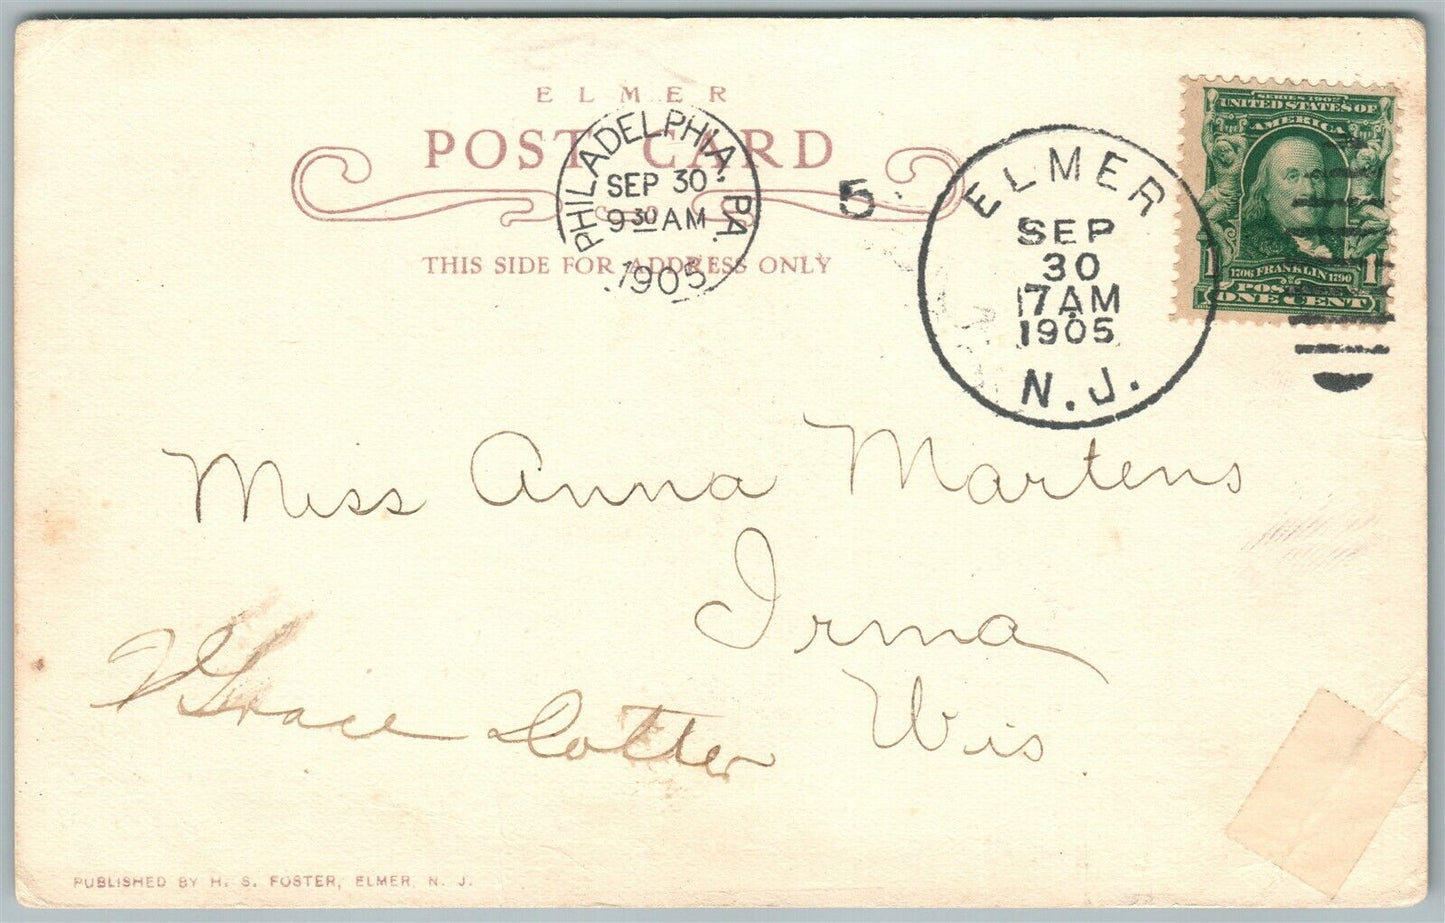 ELMER
POST CARD
THIS SIDE FOR ADDRESS ONLY
PHILADELPHIA, PA.
SEP 30
9 30 AM
1905
5
ELMER
SEP
30
7 AM
1905
N.J.
SERIES 1902
UNITED STATES OF
AMERICA
1706 FRANKLIN 1790
1 1
POSTAGE
ONE CENT
Miss Anna Martens
Irma
Wis
Grace Dotter
PUBLISHED BY H. S. FOSTER, ELMER, N. J.